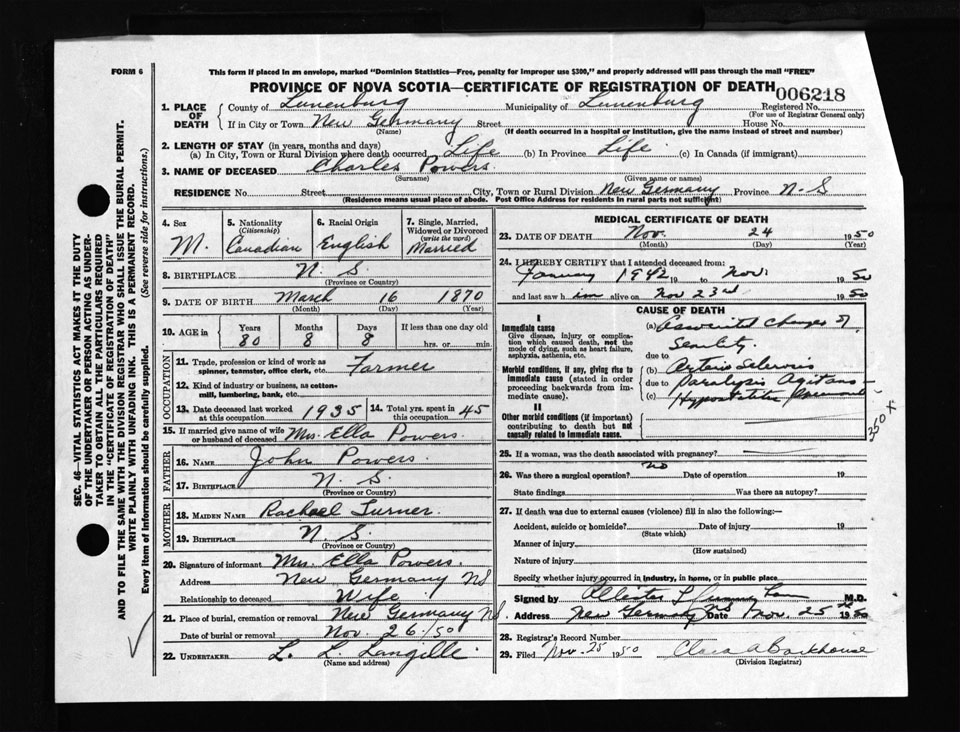 FORM 6
This form if placed in an envelope, marked "Dominion Statistics—Free, penalty for improper use $300," and properly addressed will pass through the mail "FREE"
PROVINCE OF NOVA SCOTIA—CERTIFICATE OF REGISTRATION OF DEATH
006218
1. PLACE OF DEATH County of Lunenburg Municipality of Lunenburg Registered No.
(For use of Registrar General only)
If in City or Town New Germany Street House No.
(Name) (If death occurred in a hospital or institution, give the name instead of street and number)
2. LENGTH OF STAY (in years, months and days)
(a) In City, Town or Rural Division where death occurred Life (b) In Province Life (c) In Canada (if immigrant)
3. NAME OF DECEASED Charles Powers
(Surname) (Given name or names)
RESIDENCE No. Street City, Town or Rural Division New Germany Province N-S
(Residence means usual place of abode. Post Office Address for residents in rural parts not sufficient)
4. Sex M.
5. Nationality (Citizenship) Canadian
6. Racial Origin English
7. Single, Married, Widowed or Divorced (write the word) Married
8. BIRTHPLACE N. S.
(Province or Country)
9. DATE OF BIRTH March 16 1870
(Month) (Day) (Year)
10. AGE in Years Months Days If less than one day old
80 8 8 hrs. or min.
OCCUPATION
11. Trade, profession or kind of work as spinner, teamster, office clerk, etc. Farmer
12. Kind of industry or business, as cotton-mill, lumbering, bank, etc.
13. Date deceased last worked at this occupation 1935
14. Total yrs. spent in this occupation 45
15. If married give name of wife or husband of deceased Mrs. Ella Powers
FATHER
16. NAME John Powers.
17. BIRTHPLACE N. S.
(Province or Country)
MOTHER
18. MAIDEN NAME Rachael Turner.
19. BIRTHPLACE N. S.
(Province or Country)
20. Signature of informant Mrs. Ella Powers.
Address New Germany NS
Relationship to deceased Wife
21. Place of burial, cremation or removal New Germany NS
Date of burial or removal Nov. 26/50
22. UNDERTAKER L. L. Langille.
(Name and address)
MEDICAL CERTIFICATE OF DEATH
23. DATE OF DEATH Nov. 24 1950
(Month) (Day) (Year)
24. I HEREBY CERTIFY that I attended deceased from:
January 1942 19 to Nov. 1950
and last saw him alive on Nov 23rd 1950
CAUSE OF DEATH
I
Immediate cause
Give disease, injury or complication which caused death, not the mode of dying, such as heart failure, asphyxia, asthenia, etc.
Morbid conditions, if any, giving rise to immediate cause (stated in order proceeding backwards from immediate).
II
Other morbid conditions (if important) contributing to death but not causally related to immediate cause.
(a) Associated Changes of
Senility.
due to
(b) Arterio Sclerosis
due to Paralysis Agitans
(c) Hypostatic
350 x
25. If a woman, was the death associated with pregnancy?
26. Was there a surgical operation? no Date of operation 19
State findings Was there an autopsy?
27. If death was due to external causes (violence) fill in also the following:—
Accident, suicide or homicide? Date of injury 19
(State which)
Manner of injury
(How sustained)
Nature of injury
Specify whether injury occurred in industry, in home, or in public place
Signed by M.D.
Address New Germany NS Date Nov. 25th 1950
28. Registrar's Record Number
29. Filed Nov. 25 1950 Clara A Barkhouse
(Division Registrar)
SEC. 46—VITAL STATISTICS ACT MAKES IT THE DUTY
OF THE UNDERTAKER OR PERSON ACTING AS UNDER-
TAKER TO OBTAIN ALL THE PARTICULARS REQUIRED
IN THE "CERTIFICATE OF REGISTRATION OF DEATH"
AND TO FILE THE SAME WITH THE DIVISION REGISTRAR WHO SHALL ISSUE THE BURIAL PERMIT.
WRITE PLAINLY WITH UNFADING INK. THIS IS A PERMANENT RECORD.
Every item of information should be carefully supplied. (See reverse side for instructions.)